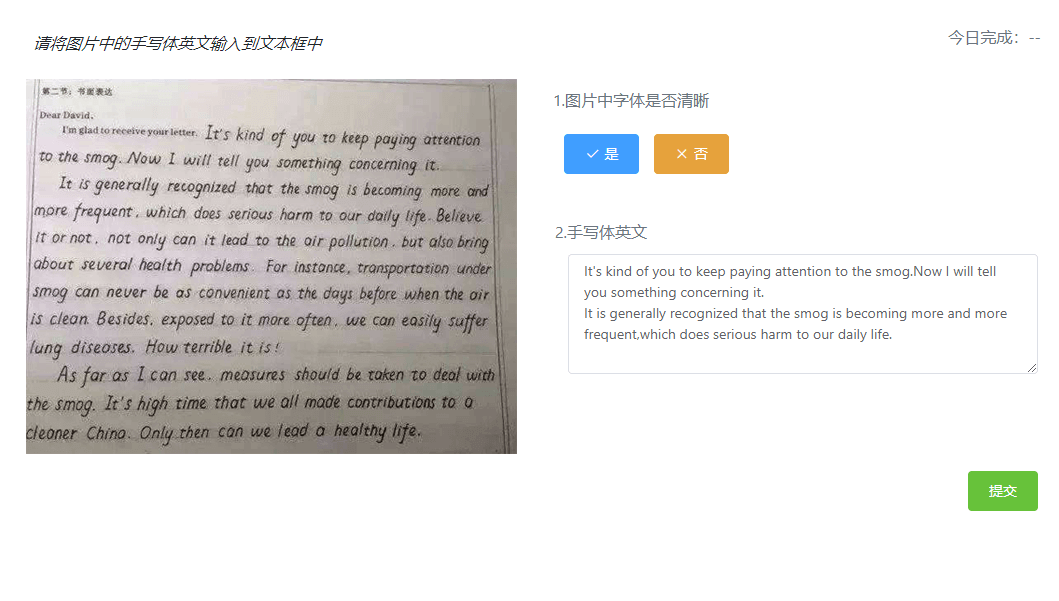 请将图片中的手写体英文输入到文本框中
今日完成：--
第二节：书面表达
Dear David,
I'm glad to receive your letter. It's kind of you to keep paying attention
to the smog. Now I will tell you something concerning it.
It is generally recognized that the smog is becoming more and
more frequent, which does serious harm to our daily life. Believe
it or not, not only can it lead to the air pollution, but also bring
about several health problems. For instance, transportation under
smog can never be as convenient as the days before when the air
is clean. Besides, exposed to it more often, we can easily suffer
lung diseases. How terrible it is!
As far as I can see, measures should be taken to deal with
the smog. It's high time that we all made contributions to a
cleaner China. Only then can we lead a healthy life.
1.图片中字体是否清晰
是
否
2.手写体英文
It's kind of you to keep paying attention to the smog.Now I will tell
you something concerning it.
It is generally recognized that the smog is becoming more and more
frequent,which does serious harm to our daily life.
提交